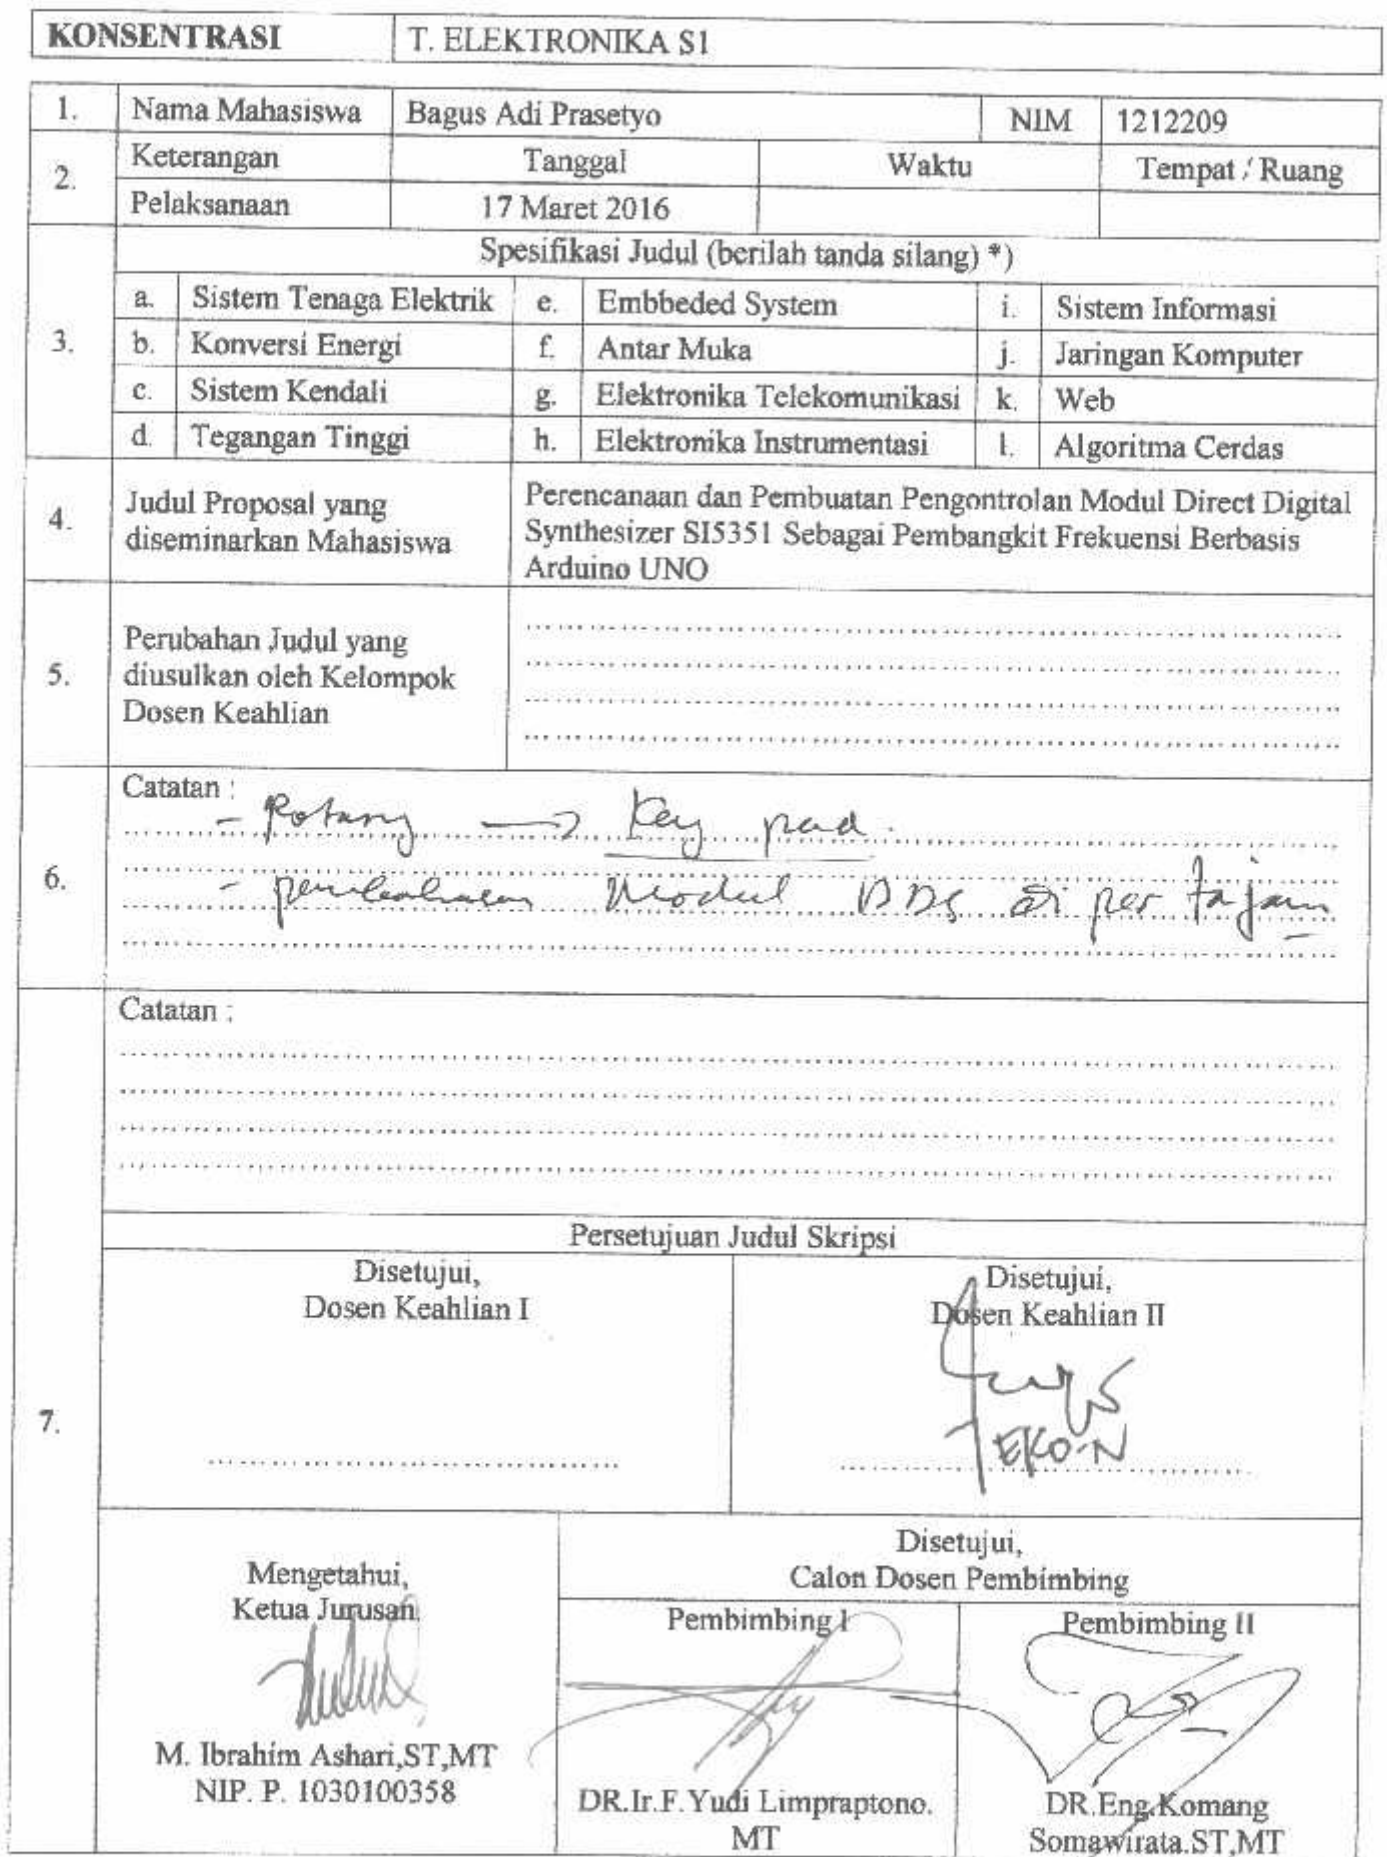 KONSENTRASI T. ELEKTRONIKA S1
1. Nama Mahasiswa Bagus Adi Prasetyo NIM 1212209
2. Keterangan Tanggal Waktu Tempat / Ruang
Pelaksanaan 17 Maret 2016
3. Spesifikasi Judul (berilah tanda silang) *)
a. Sistem Tenaga Elektrik e. Embbeded System i. Sistem Informasi
b. Konversi Energi f. Antar Muka j. Jaringan Komputer
c. Sistem Kendali g. Elektronika Telekomunikasi k. Web
d. Tegangan Tinggi h. Elektronika Instrumentasi l. Algoritma Cerdas
4. Judul Proposal yang
diseminarkan Mahasiswa
Perencanaan dan Pembuatan Pengontrolan Modul Direct Digital
Synthesizer SI5351 Sebagai Pembangkit Frekuensi Berbasis
Arduino UNO
5. Perubahan Judul yang
diusulkan oleh Kelompok
Dosen Keahlian
6. Catatan :
- → Key pad.
- pembahasan Modul DDS di per tajam
Catatan :
7. Persetujuan Judul Skripsi
Disetujui,
Dosen Keahlian I
Disetujui,
Dosen Keahlian II
EKO·N
Mengetahui,
Ketua Jurusan
M. Ibrahim Ashari,ST,MT
NIP. P. 1030100358
Disetujui,
Calon Dosen Pembimbing
Pembimbing I
DR.Ir.F.Yudi Limpraptono.
MT
Pembimbing II
DR.Eng.Komang
Somawirata.ST,MT